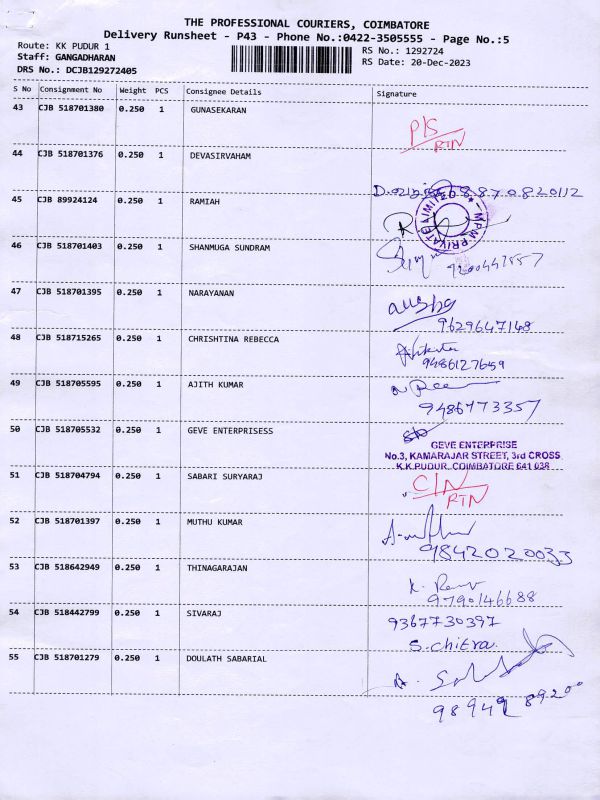 THE PROFESSIONAL COURIERS, COIMBATORE
Delivery Runsheet - P43 - Phone No.:0422-3505555 - Page No.:5
Route: KK PUDUR 1
Staff: GANGADHARAN
DRS No.: DCJB129272405
RS No.: 1292724
RS Date: 20-Dec-2023
S No Consignment No Weight PCS Consignee Details Signature
43 CJB 518701380 0.250 1 GUNASEKARAN
P/S
RTN
44 CJB 518701376 0.250 1 DEVASIRVAHAM
8870820112
45 CJB 89924124 0.250 1 RAMIAH
MPM PRIVATE LIMITED
46 CJB 518701403 0.250 1 SHANMUGA SUNDRAM
47 CJB 518701395 0.250 1 NARAYANAN
9629647148
48 CJB 518715265 0.250 1 CHRISHTINA REBECCA
9486127659
49 CJB 518705595 0.250 1 AJITH KUMAR
9486773357
50 CJB 518705532 0.250 1 GEVE ENTERPRISESS
GEVE ENTERPRISE
No.3, KAMARAJAR STREET, 3rd CROSS
K.K.PUDUR, COIMBATORE 641 038
51 CJB 518704794 0.250 1 SABARI SURYARAJ
C/N
RTN
52 CJB 518701397 0.250 1 MUTHU KUMAR
9842020033
53 CJB 518642949 0.250 1 THINAGARAJAN
9790146688
54 CJB 518442799 0.250 1 SIVARAJ
9367730397
S.chitra.
55 CJB 518701279 0.250 1 DOULATH SABARIAL